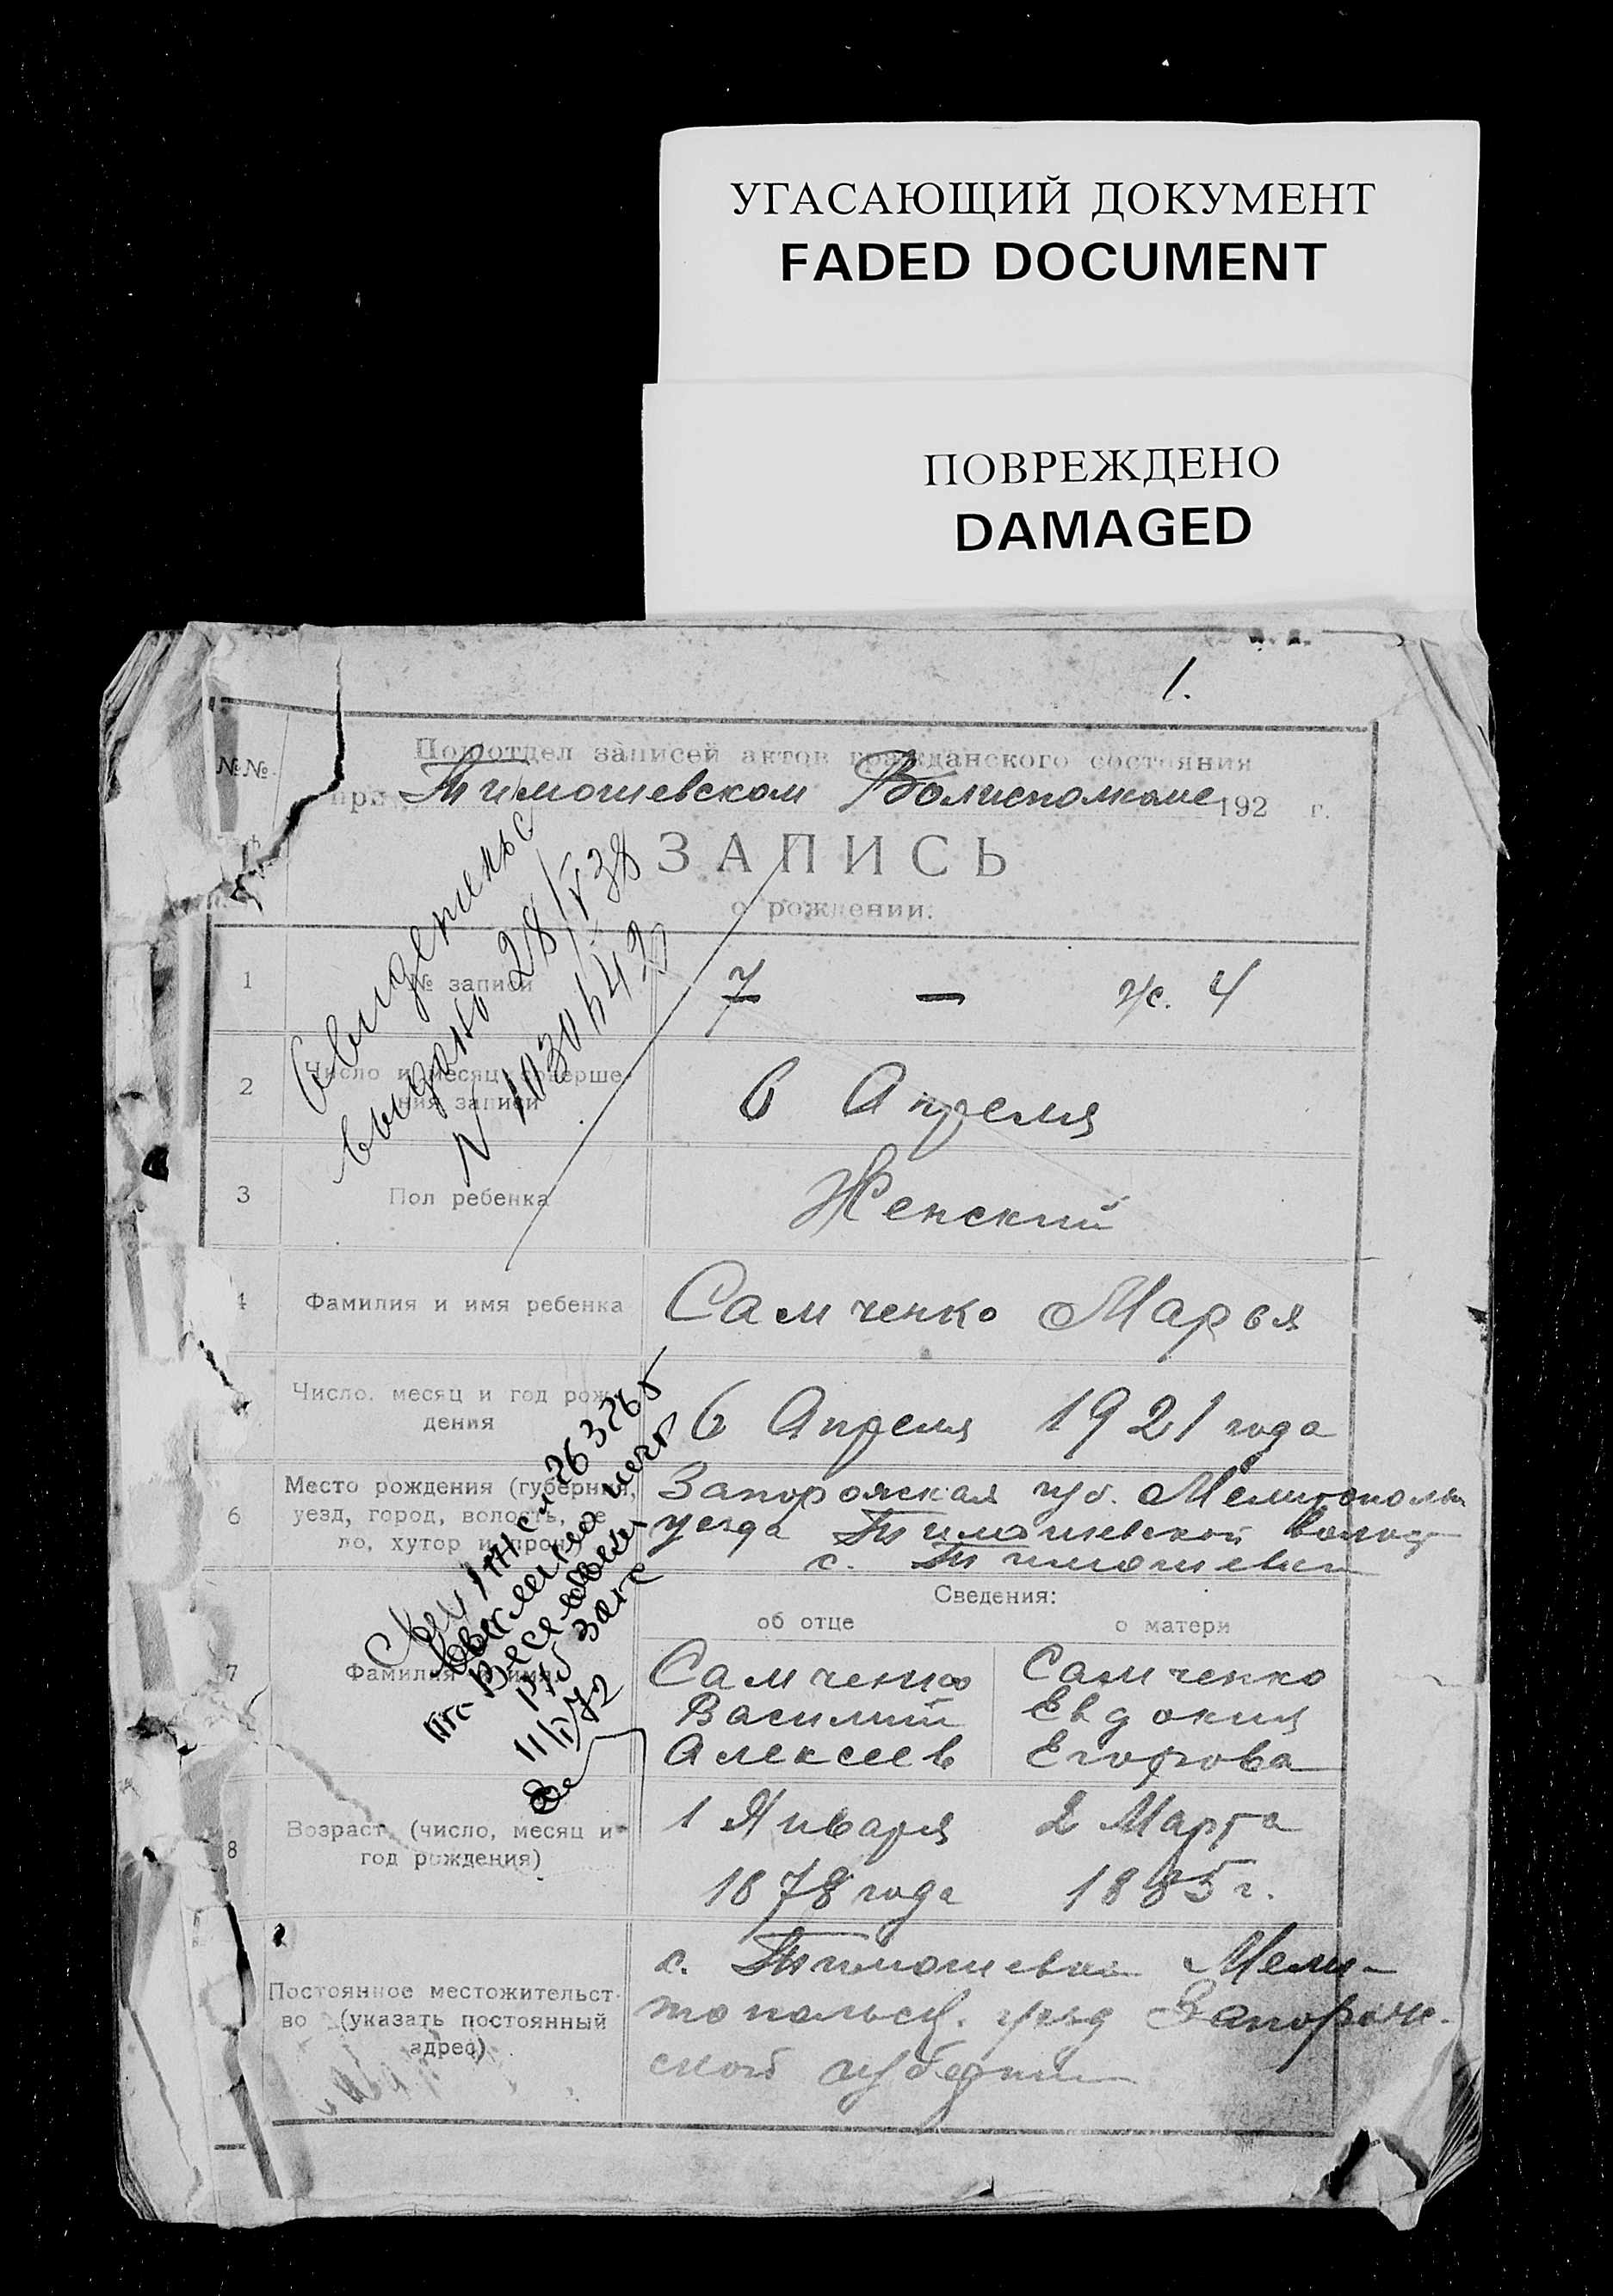 УГАСАЮЩИЙ ДОКУМЕНТ
FADED DOCUMENT
ПОВРЕЖДЕНО
DAMAGED
1.
№№
Подотдел записей актов гражданского состояния
при Тимошевском Волисполкоме 192 г.
ЗАПИСЬ
о рождении.
Свидетельс
выдано 28/V 38
N
1
№ записи
7 — ж. 4
2
Число и месяц соверше-
ния записи
6 Апреля
3
Пол ребенка
Женский
4
Фамилия и имя ребенка
Самченко Марья
Число, месяц и год рож-
дения
6 Апреля 1921 года
6
Место рождения (губерния,
уезд, город, волость, се
ло, хутор и проч
Запорожская губ. Мелитополь
уезда Тимошевской Волост
с. Тимошевка
Сведения:
об отце
о матери
7
Фамилия и имя
Самченко
Василий
Алексеев
Самченко
Евдокия
Егорова
загс
11/V 72
8
Возраст (число, месяц и
год рождения)
1 Января
1878 года
2 Марта
1885 г.
Постоянное местожительст-
во (указать постоянный
адрес)
с. Тимошевка Мели-
топольск. уезд Запорож-
ской губернии